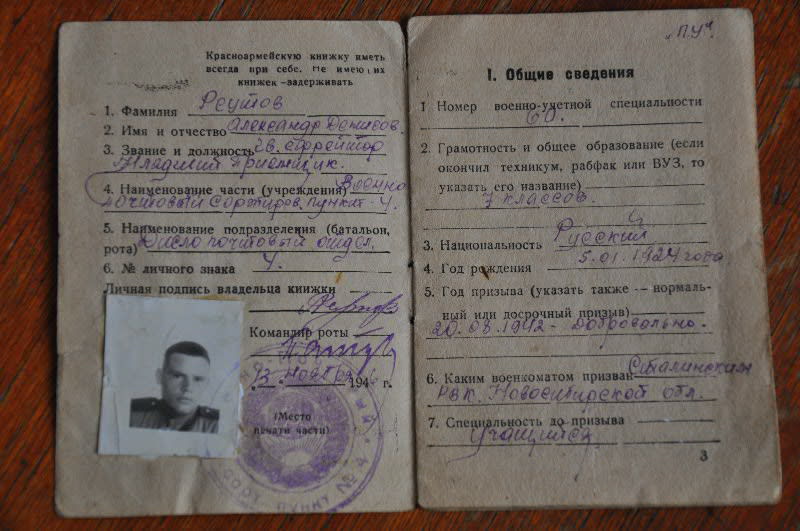 Красноармейскую книжку иметь
всегда при себе. Не имеющих
книжек -задерживать
1. Фамилия Реутов
2. Имя и отчество Александр Денисов.
3. Звание и должность Гв. ефрейтор
Младший Приемщик.
4. Наименование части (учреждения) Военно
почтовый сортиров. пункт - 4.
5. Наименование подразделения (батальон,
рота) Письмо почтовый отдел.
6. № личного знака 4.
Личная подпись владельца книжки
Командир роты
13 ноября 194 г.
(Место
печати части)
СОРТ. ПУНКТ № 4
"П.У."
I. Общие сведения
1 Номер военно-учетной специальности
60.
2. Грамотность и общее образование (если
окончил техникум, рабфак или ВУЗ, то
указать его название)
7 классов.
3. Национальность Русский
4. Год рождения 5.01.1924 года
5. Год призыва (указать также — нормаль-
ный или досрочный призыв)
20.08.1942 - добровольно.
6. Каким военкоматом призван Сталинским
РВК. Новосибирской обл.
7. Специальность до призыва
учащийся
3